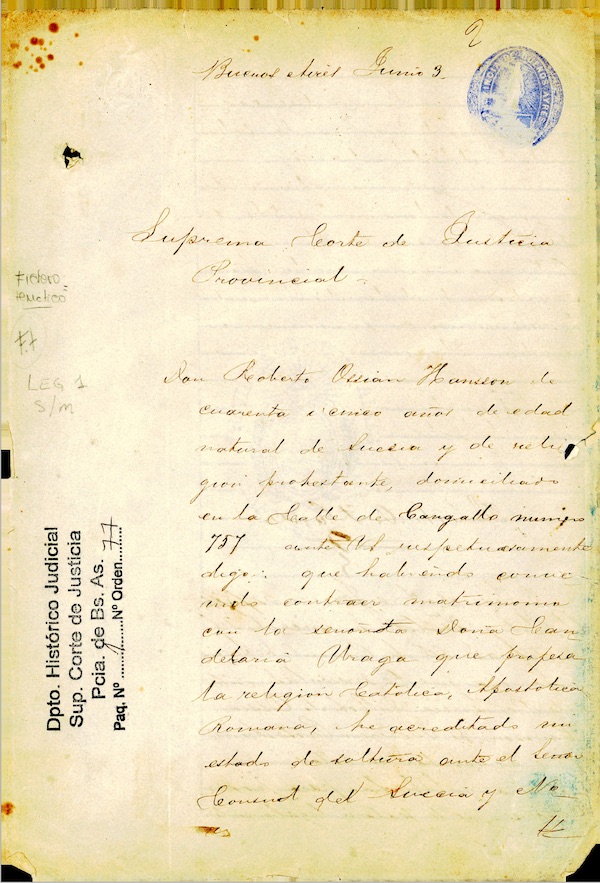 2
Buenos Aires Junio 3
BUENOS AYRES
Suprema Corte de Justicia
Provincial -
Fichero
tematico
77
LEG 1
S/M
Don Roberto Ossian Hansson de
cuarenta i cinco años de edad
natural de Suecia y de reli
gion protestante, domiciliado
en la Calle de Cangallo numero
757 ante VE respetuosamente
digo: que habiendo conve
nido contraer matrimonio
con la señorita Doña Can
delaria Uraga que profesa
la religion Catolica, Apostolica
Romana, he acreditado mi
estado de soltura ante el Señor
Consul del Suecia y No
Dpto. Histórico Judicial
Sup. Corte de Justicia
Pcia. de Bs. As.
Paq. Nº 1 Nº Orden 77